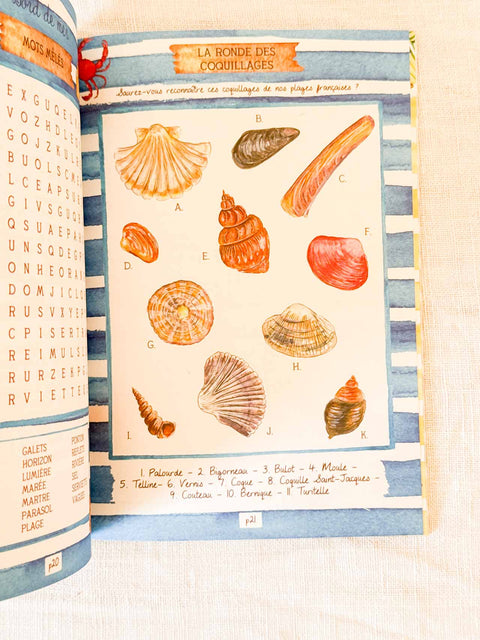 bord de mer
MOTS MÊLÉS
E X G U Q E
V O Z H D L E
G O J Z K U L
B U O L S C M
L C E A P S U E
G I V S G U Q
Q S U A E P A
U N S Q D E G
O N H E O R A
D O M J I C L
R U S V X Y E
C P I S E R T
R E I M U L S
R U R Z E H P
R V I E T T E
GALETS
HORIZON
LUMIÈRE
MARÉE
MARTRE
PARASOL
PLAGE
PONTON
SEL
p20
LA RONDE DES
COQUILLAGES
Saurez-vous reconnaître ces coquillages de nos plages françaises ?
A.
B.
C.
D.
E.
F.
G.
H.
I.
J.
K.
1. Palourde - 2. Bigorneau - 3. Bulot - 4. Moule -
5. Telline - 6. Vernis - 7. Coque - 8. Coquille Saint-Jacques -
9. Couteau - 10. Bernique - 11. Turitelle
p21